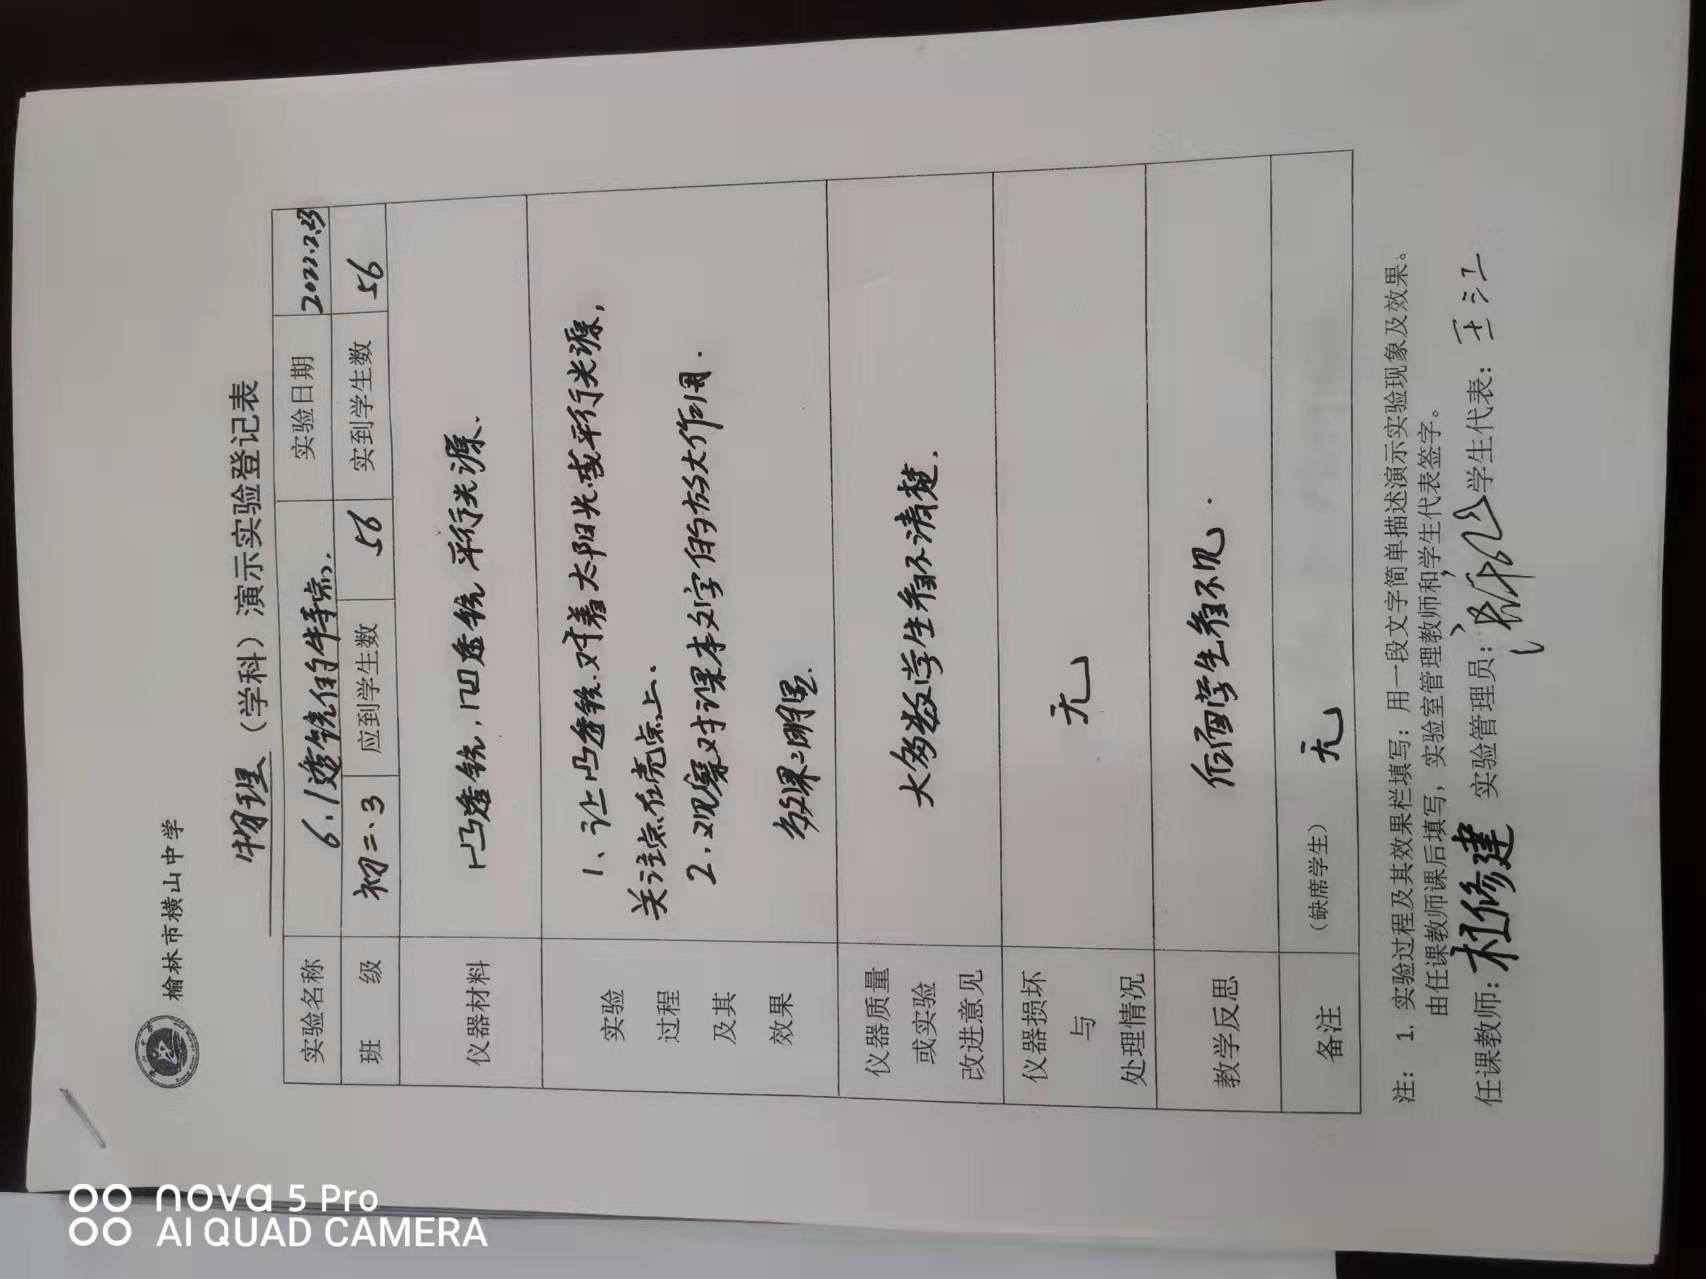 榆林市横山中学
物理（学科）演示实验登记表
实验名称 6.1透镜的特点. 实验日期 2022.2.23
班 级 初二.3 应到学生数 56 实到学生数 56
仪器材料 凸透镜,凹透镜 平行光源.
实验
过程
及其
效果
1、让凸透镜对着太阳光或平行光源,
关注点在亮点上.
2.观察对课本文字的放大作用.
效果:明显.
仪器质量
或实验
改进意见
大多数学生看不清楚.
仪器损坏
与
处理情况
无
教学反思 后面学生看不见.
备注 （缺席学生） 无
注： 1. 实验过程及其效果栏填写：用一段文字简单描述演示实验现象及效果。
由任课教师课后填写，实验室管理教师和学生代表签字。
任课教师：杜修建 实验管理员： 学生代表：王江
nova 5 Pro
AI QUAD CAMERA